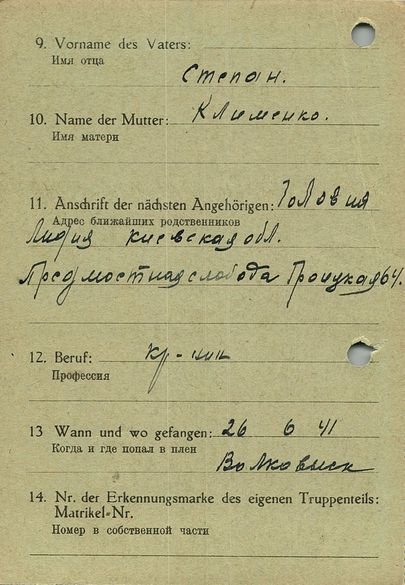 9. Vorname des Vaters:
Имя отца
Степан.
10. Name der Mutter: Клименко.
Имя матери
11. Anschrift der nächsten Angehörigen: Головия
Адрес ближайших родственников
Лидия киевская обл.
Предмостная слобода Троицкая 64.
12. Beruf: кр-нин
Профессия
13 Wann und wo gefangen: 26 6 41
Когда и где попал в плен
Волковыск
14. Nr. der Erkennungsmarke des eigenen Truppenteils:
Matrikel-Nr.
Номер в собственной части